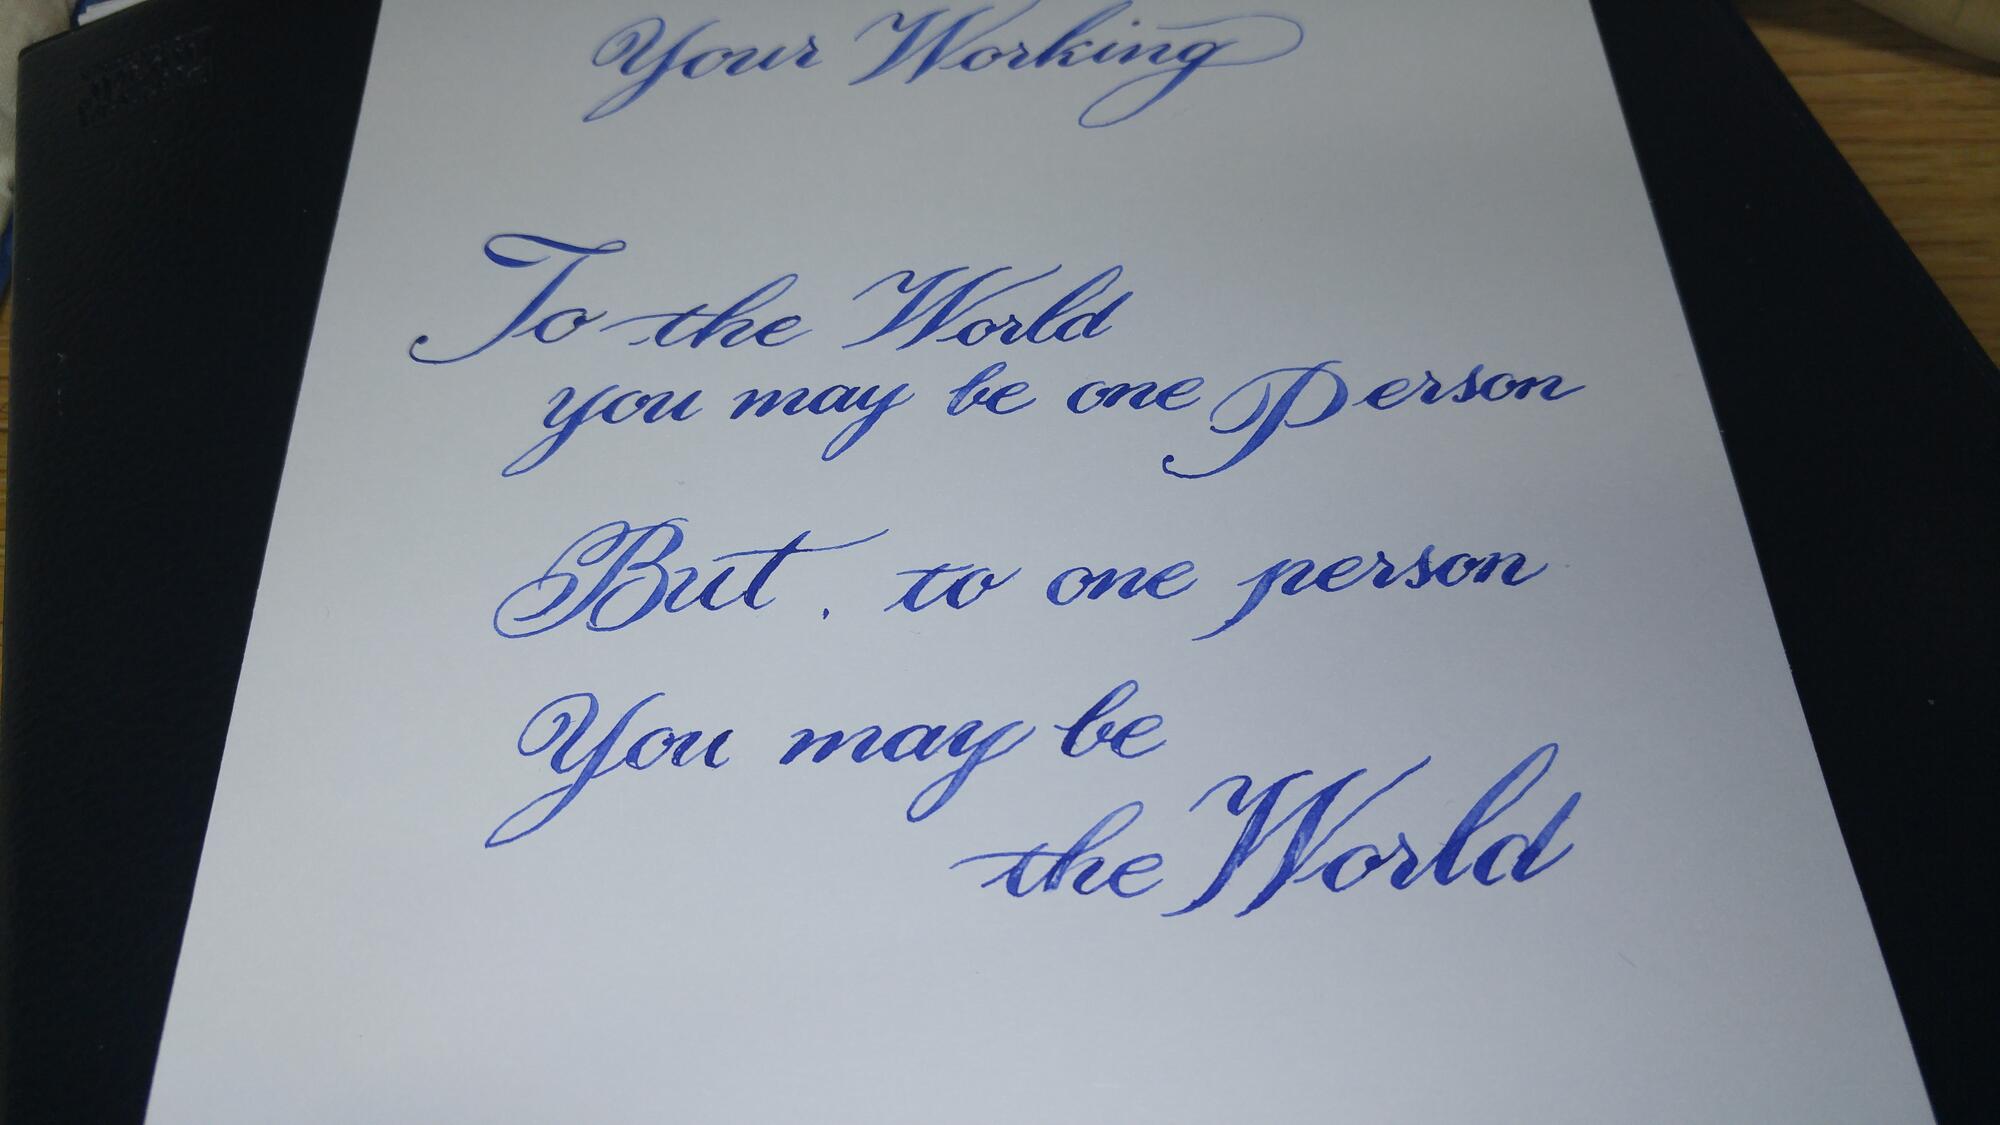 Your Working
To the World
you may be one Person
But, to one person
You may be
the World